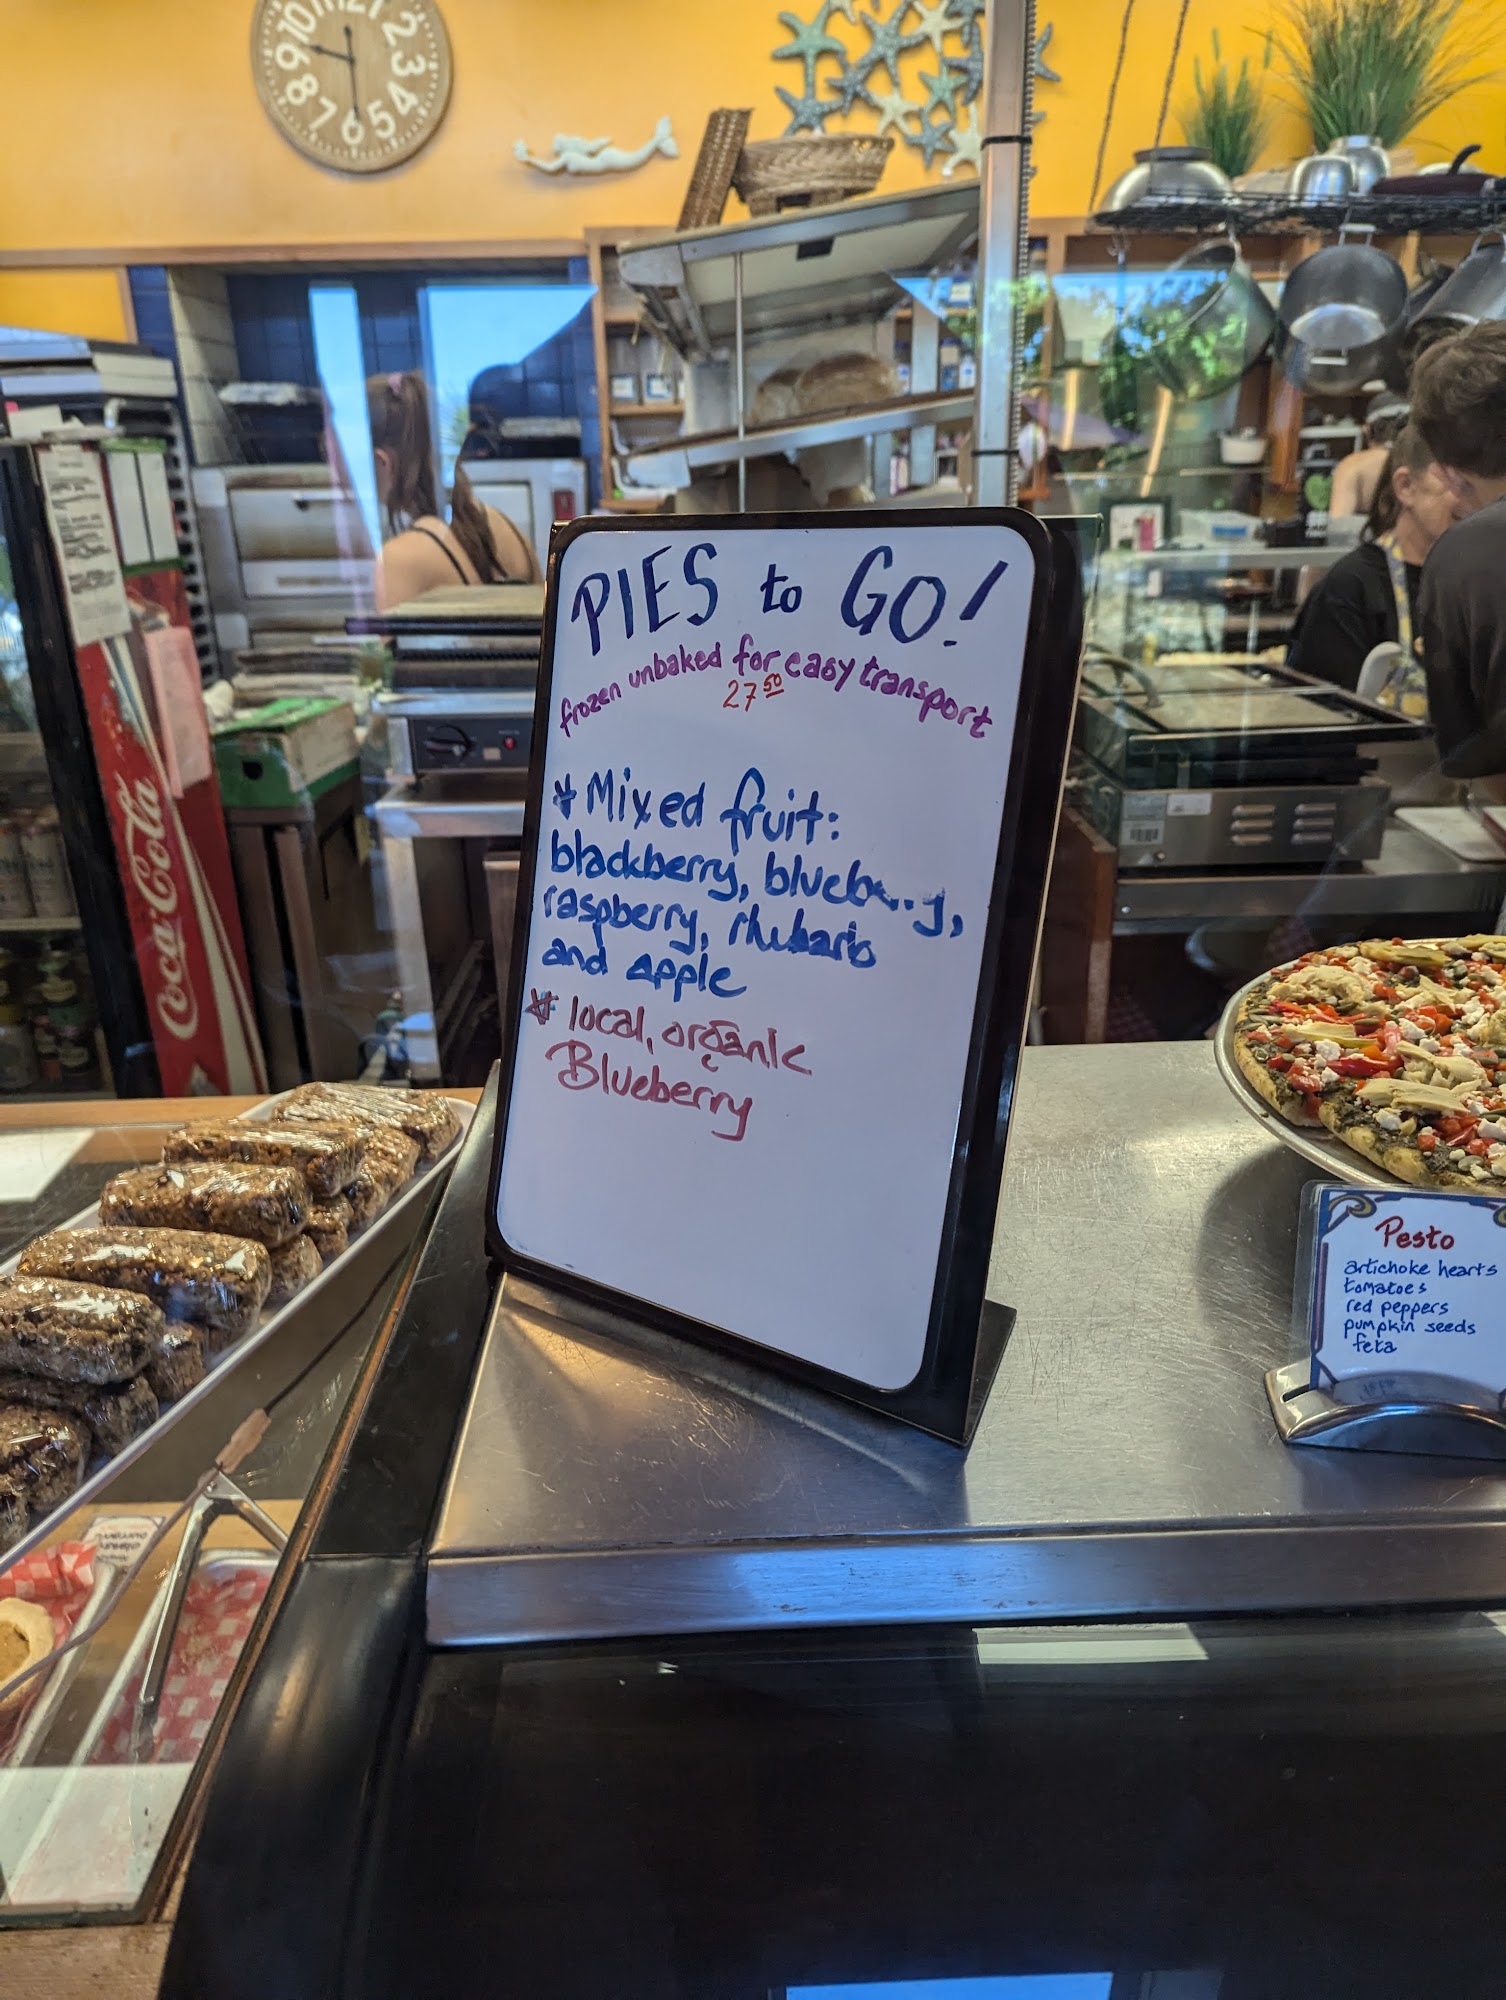 PIES to GO!
frozen unbaked for easy transport
27 50
* Mixed fruit:
blackberry, blueberry,
raspberry, rhubarb
and apple
* local, organic
Blueberry
Pesto
artichoke hearts
tomatoes
red peppers
pumpkin seeds
feta
Coca-Cola
10 11 12 1 2 3 4 5 6 7 8 9